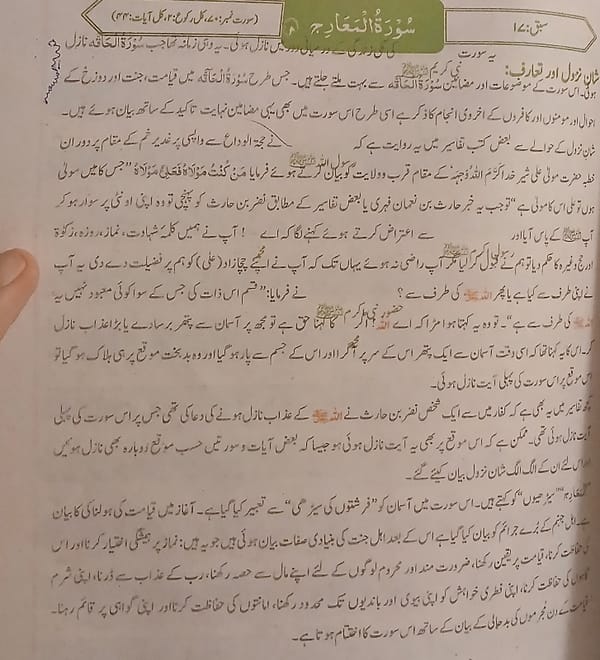 سبق: ۱۷
سُوْرَةُ الْمَعَارِجِ
(سورت نمبر: ۷۰، کل رکوع: ۲، کل آیات: ۴۴)
شانِ نزول اور تعارف: یہ سورت نبی کریم ﷺ کی مکی زندگی کے درمیانی دور میں نازل ہوئی۔ یہ وہی زمانہ تھا جب سُوْرَةُ الْحَآقَّه نازل
ہوئی۔ اس سورت کے موضوعات اور مضامین سُوْرَةُ الْحَآقَّه سے بہت ملتے جلتے ہیں۔ جس طرح سُوْرَةُ الْحَآقَّه میں قیامت، جنت اور دوزخ کے
احوال اور مومنوں اور کافروں کے اخروی انجام کا ذکر ہے اسی طرح اس سورت میں بھی یہی مضامین نہایت تاکید کے ساتھ بیان ہوئے ہیں۔
شانِ نزول کے حوالے سے بعض کتب تفاسیر میں یہ روایت ہے کہ رسول اللہ ﷺ نے حجۃ الوداع سے واپسی پر غدیر خم کے مقام پر دوران
خطبہ حضرت مولیٰ علی شیر خدا کَرَّمَ اللّٰهُ وَجْهَهٗ کے مقام قرب و ولایت کو بیان کرتے ہوئے فرمایا مَنْ كُنْتُ مَوْلَاهُ فَعَلِيٌّ مَوْلَاهُ ”جس کا میں مولیٰ
ہوں تو علی اس کا مولیٰ ہے“ تو جب یہ خبر حارث بن نعمان فہری یا بعض تفاسیر کے مطابق نضر بن حارث کو پہنچی تو وہ اپنی اونٹنی پر سوار ہو کر
آپ ﷺ کے پاس آیا اور سے اعتراض کرتے ہوئے کہنے لگا کہ اے ! آپ نے ہمیں کلمۂ شہادت، نماز، روزہ، زکوٰۃ
اور حج وغیرہ کا حکم دیا تو ہم نے قبول کر لیا مگر آپ راضی نہ ہوئے یہاں تک کہ آپ نے اپنے چچا زاد (علی) کو ہم پر فضیلت دے دی یہ آپ
نے اپنی طرف سے کیا ہے یا پھر اللہ کی طرف سے؟ حضور نبی اکرم ﷺ نے فرمایا: ”قسم اس ذات کی جس کے سوا کوئی معبود نہیں یہ
اللہ کی طرف سے ہے“۔ تو وہ یہ کہتا ہوا مڑا کہ اے اللہ! اگر کا کہنا حق ہے تو مجھ پر آسمان سے پتھر برسا دے یا بڑا عذاب نازل
کر۔ اس کا یہ کہنا تھا کہ اسی وقت آسمان سے ایک پتھر اس کے سر پر آ گرا اور اس کے جسم سے پار ہو گیا اور وہ بدبخت موقع پر ہی ہلاک ہو گیا تو
اس موقع پر اس سورت کی پہلی آیت نازل ہوئی۔
کچھ تفاسیر میں یہ بھی ہے کہ کفار میں سے ایک شخص نضر بن حارث نے اللہ کے عذاب نازل ہونے کی دعا کی تھی جس پر اس سورت کی پہلی
آیت نازل ہوئی تھی۔ ممکن ہے کہ اس موقع پر بھی یہ آیت نازل ہوئی ہو جیسا کہ بعض آیات و سورتیں حسب موقع دوبارہ بھی نازل ہوئیں
اور اس لئے ان کے الگ الگ شان نزول بیان کیئے گئے۔
”سیڑھیوں“ کو کہتے ہیں۔ اس سورت میں آسمان کو ”فرشتوں کی سیڑھی“ سے تعبیر کیا گیا ہے۔ آغاز میں قیامت کی ہولناکی کا بیان
ہے۔ اہل جہنم کے بُرے جرائم کو بیان کیا گیا ہے اس کے بعد اہل جنت کی بنیادی صفات بیان ہوئی ہیں جو یہ ہیں: نماز پر ہمیشگی اختیار کرنا اور اس
کی حفاظت کرنا، قیامت پر یقین رکھنا، ضرورت مند اور محروم لوگوں کے لئے اپنے مال سے حصہ رکھنا، رب کے عذاب سے ڈرنا، اپنی شرم
گاہوں کی حفاظت کرنا، اپنی فطری خواہش کو اپنی بیوی اور باندیوں تک محدود رکھنا، امانتوں کی حفاظت کرنا اور اپنی گواہی پر قائم رہنا۔
قیامت کے دن مجرموں کی بدحالی کے بیان کے ساتھ اس سورت کا اختتام ہوتا ہے۔